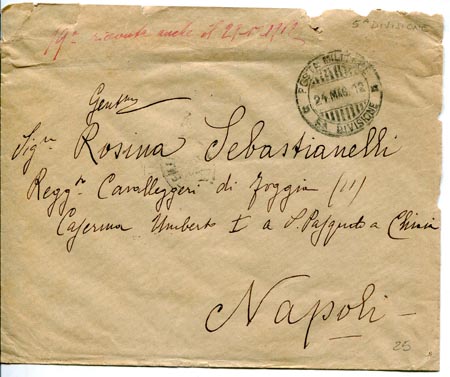 5ª DIVISIONE
19ª ricevuta anche il
POSTA MILITARE
24 MAG. 12
5ª DIVISIONE
Gent.ma
Sig.ra Rosina Sebastianelli
Regg.to Cavalleggeri di Foggia (11)
Caserma Umberto I a S. Pasquale a Chiaia
Napoli
25